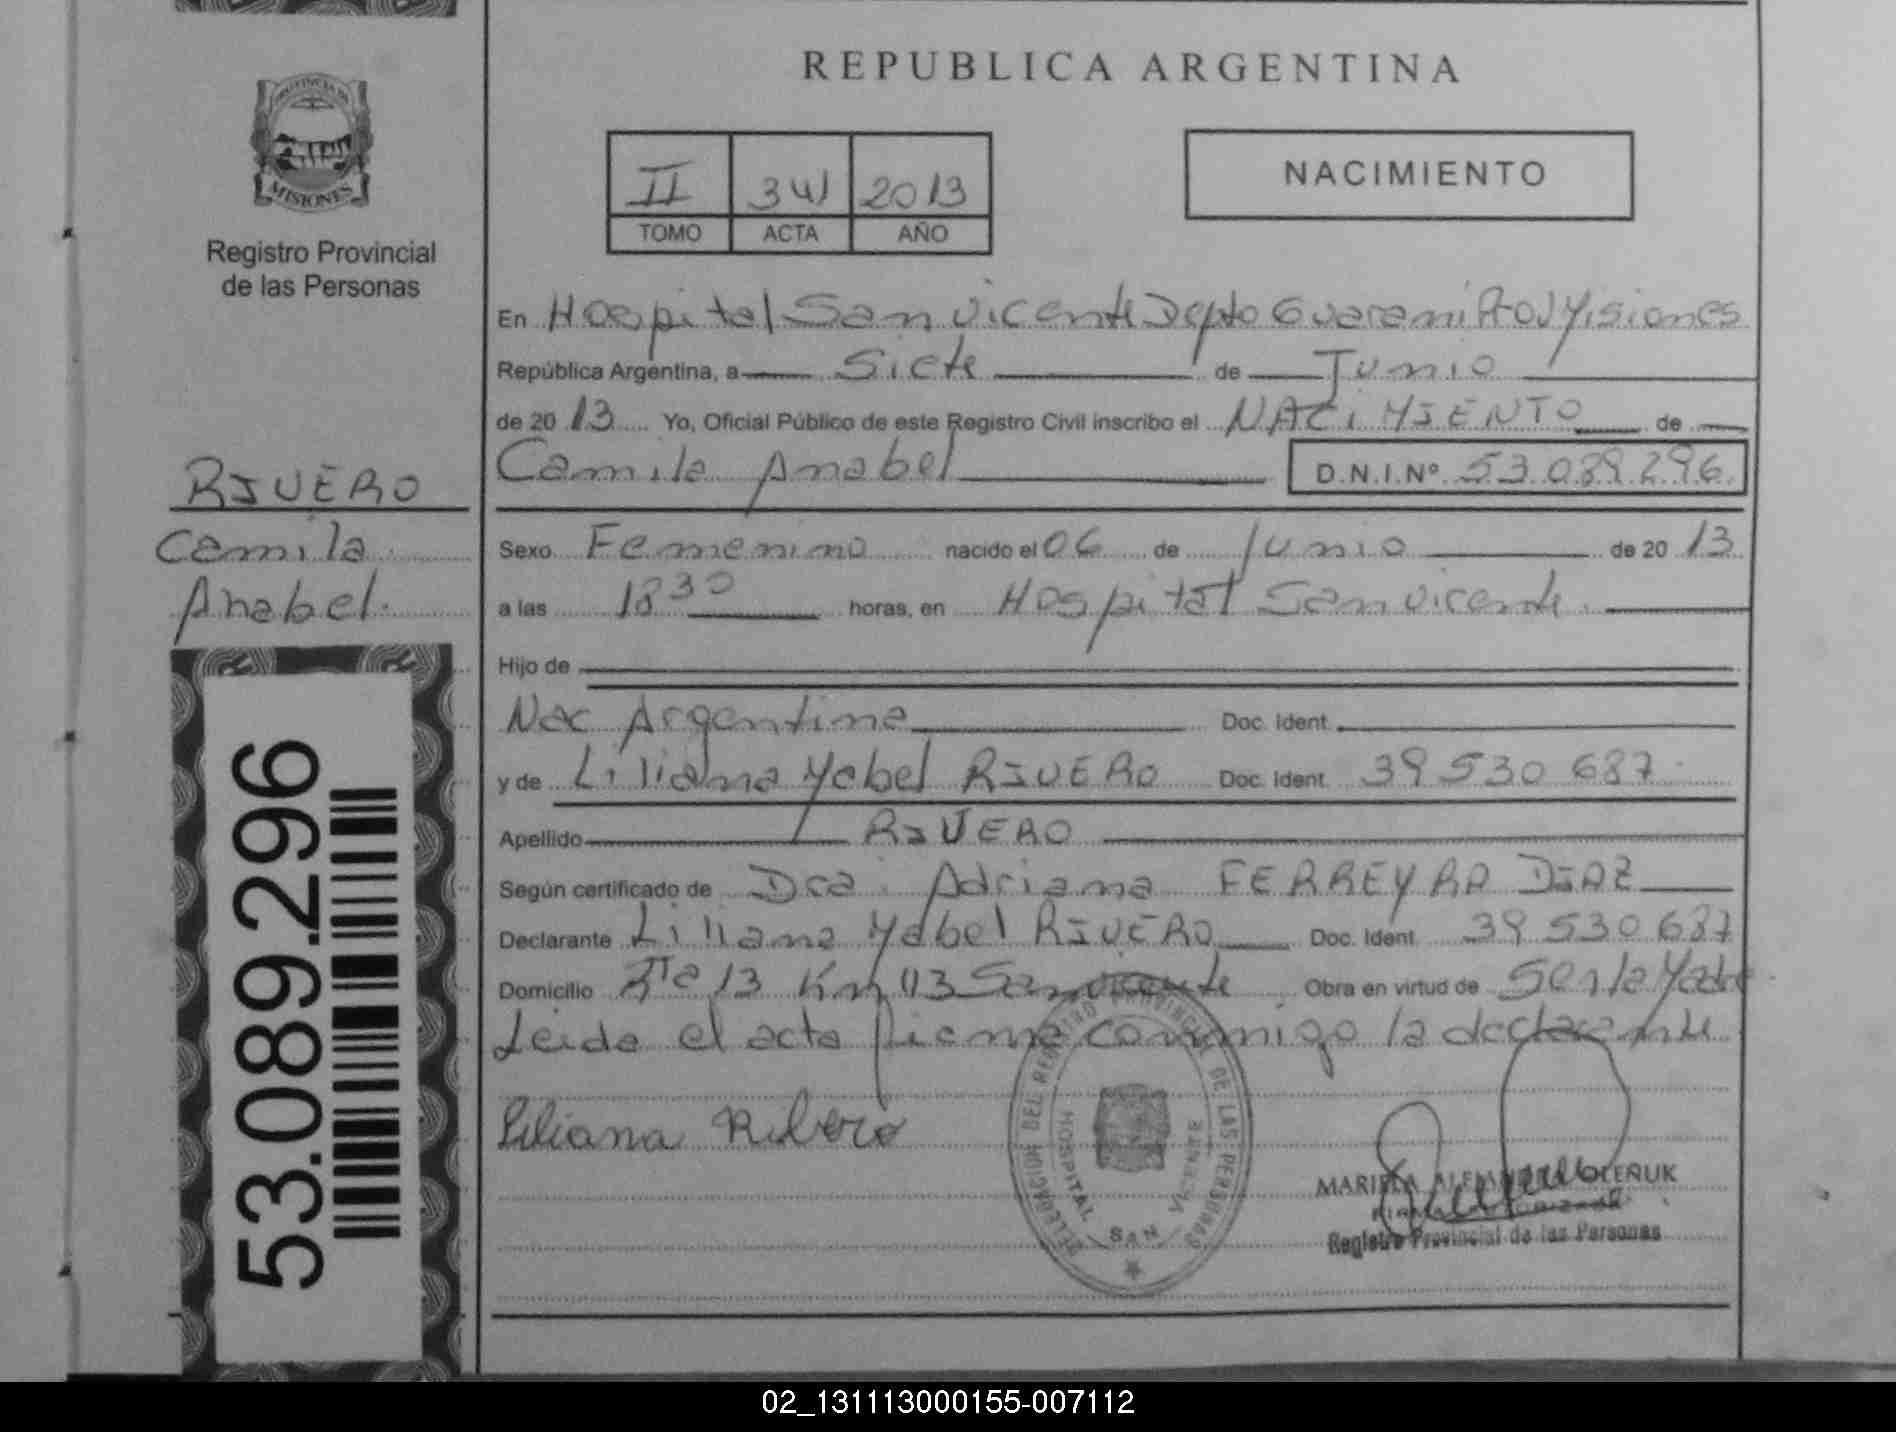 REPUBLICA ARGENTINA
PROVINCIA DE
MISIONES
Registro Provincial
de las Personas
II 341 2013
TOMO ACTA AÑO
NACIMIENTO
En Hospital San vicente Depto Guarani Prov Misiones
República Argentina, a Siete de Junio
de 2013 Yo, Oficial Público de este Registro Civil inscribo el NACIMIENTO de
Camila Anabel D.N.I.Nº 53.089.296
RIVERO
Camila
Anabel.
Sexo Femenino nacido el 06 de Junio de 2013
a las 18 30 horas, en Hospital San vicente.
Hijo de
Nac Argentina Doc. Ident.
y de Liliana Mabel RIVERO Doc. Ident. 39 530 687
Apellido RIVERO
Según certificado de Dra. Adriana FERREYRA DIAZ
Declarante Liliana Mabel RIVERO Doc. Ident. 39 530 687
Domicilio Rta 13 Km 113 San vicente Obra en virtud de Ser la Madre
Leida el acta firma conmigo la declarante
Liliana Ribero
DELEGACION DEL REGISTRO PROVINCIAL DE LAS PERSONAS
HOSPITAL SAN VICENTE
MARIELA OLEÑUK
Registro Provincial de las Personas
53.089.296
02_131113000155-007112